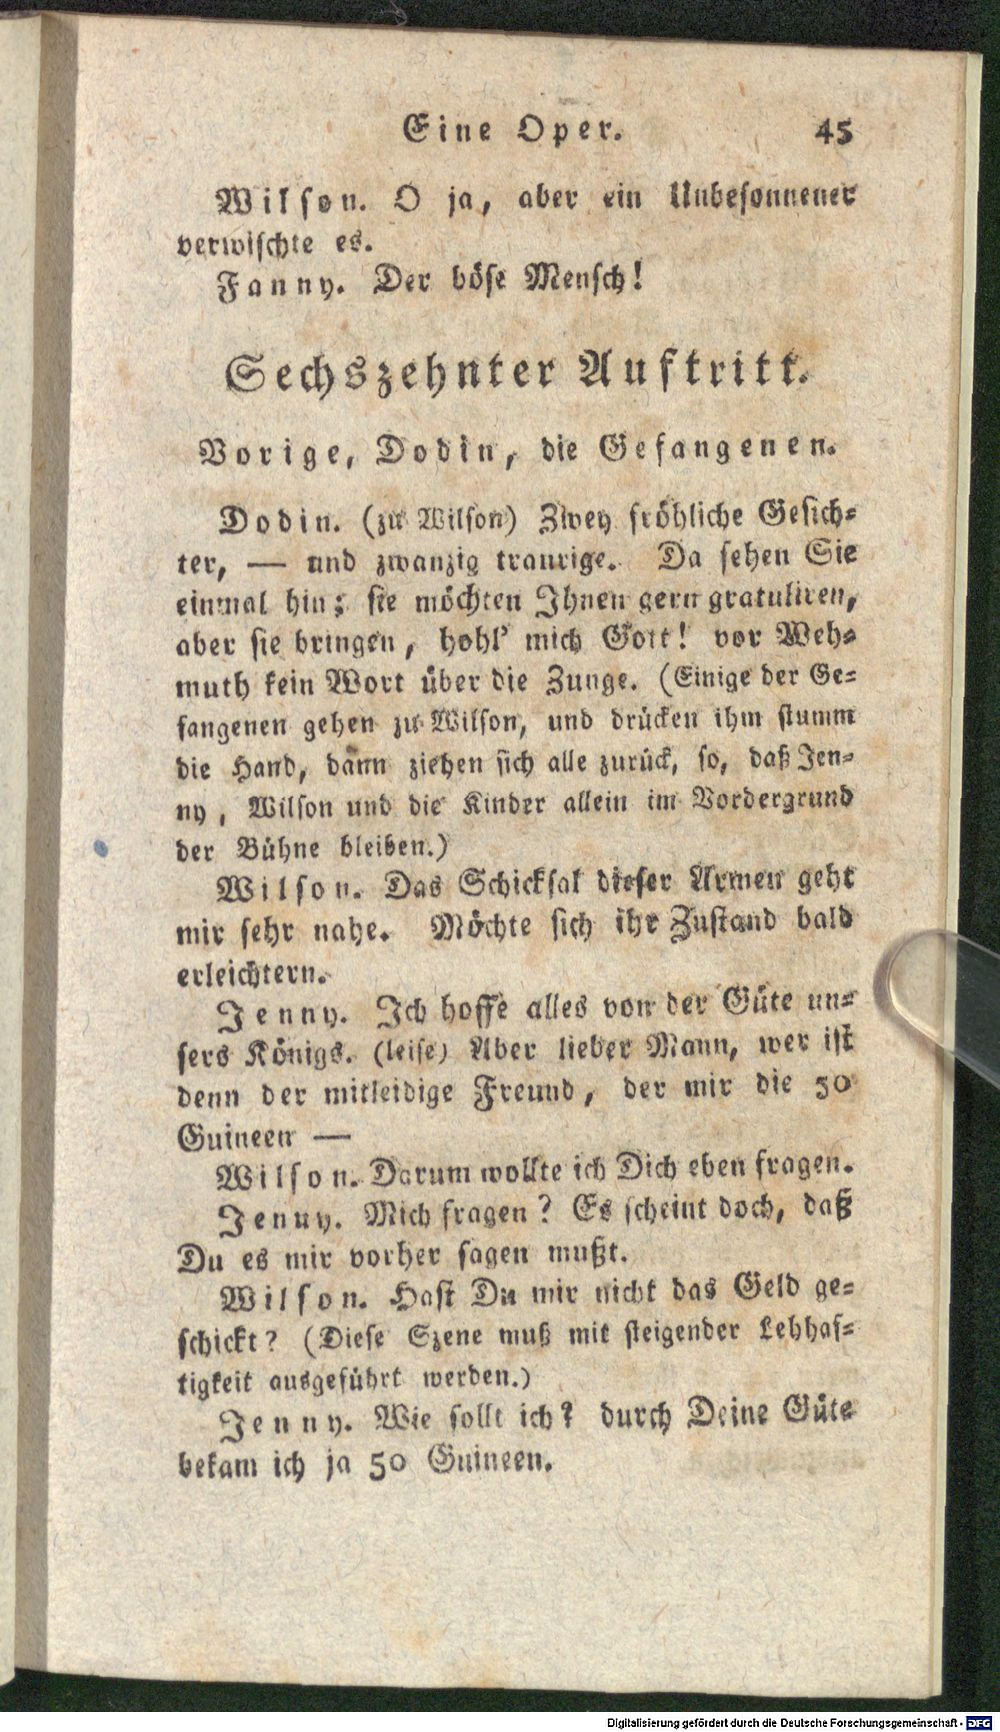 Eine Oper. 45
Wilson. O ja, aber ein Unbesonnener
verwischte es.
Fanny. Der böse Mensch!
Sechszehnter Auftritt.
Vorige, Dodin, die Gefangenen.
Dodin. (zu Wilson) Zwey fröhliche Gesich-
ter, — und zwanzig traurige. Da sehen Sie
einmal hin; sie möchten Ihnen gern gratuliren,
aber sie bringen, hohl' mich Gott! vor Weh-
muth kein Wort über die Zunge. (Einige der Ge-
fangenen gehen zu Wilson, und drücken ihm stumm
die Hand, dann ziehen sich alle zurück, so, daß Jen-
ny, Wilson und die Kinder allein im Vordergrund
der Bühne bleiben.)
Wilson. Das Schicksal dieser Armen geht
mir sehr nahe. Möchte sich ihr Zustand bald
erleichtern.
Jenny. Ich hoffe alles von der Güte un-
sers Königs. (leise) Aber lieber Mann, wer ist
denn der mitleidige Freund, der mir die 50
Guineen —
Wilson. Darum wollte ich Dich eben fragen.
Jenny. Mich fragen? Es scheint doch, daß
Du es mir vorher sagen mußt.
Wilson. Hast Du mir nicht das Geld ge-
schickt? (Diese Szene muß mit steigender Lebhaf-
tigkeit ausgeführt werden.)
Jenny. Wie sollt ich? durch Deine Güte
bekam ich ja 50 Guineen.
Digitalisierung gefördert durch die Deutsche Forschungsgemeinschaft - DFG